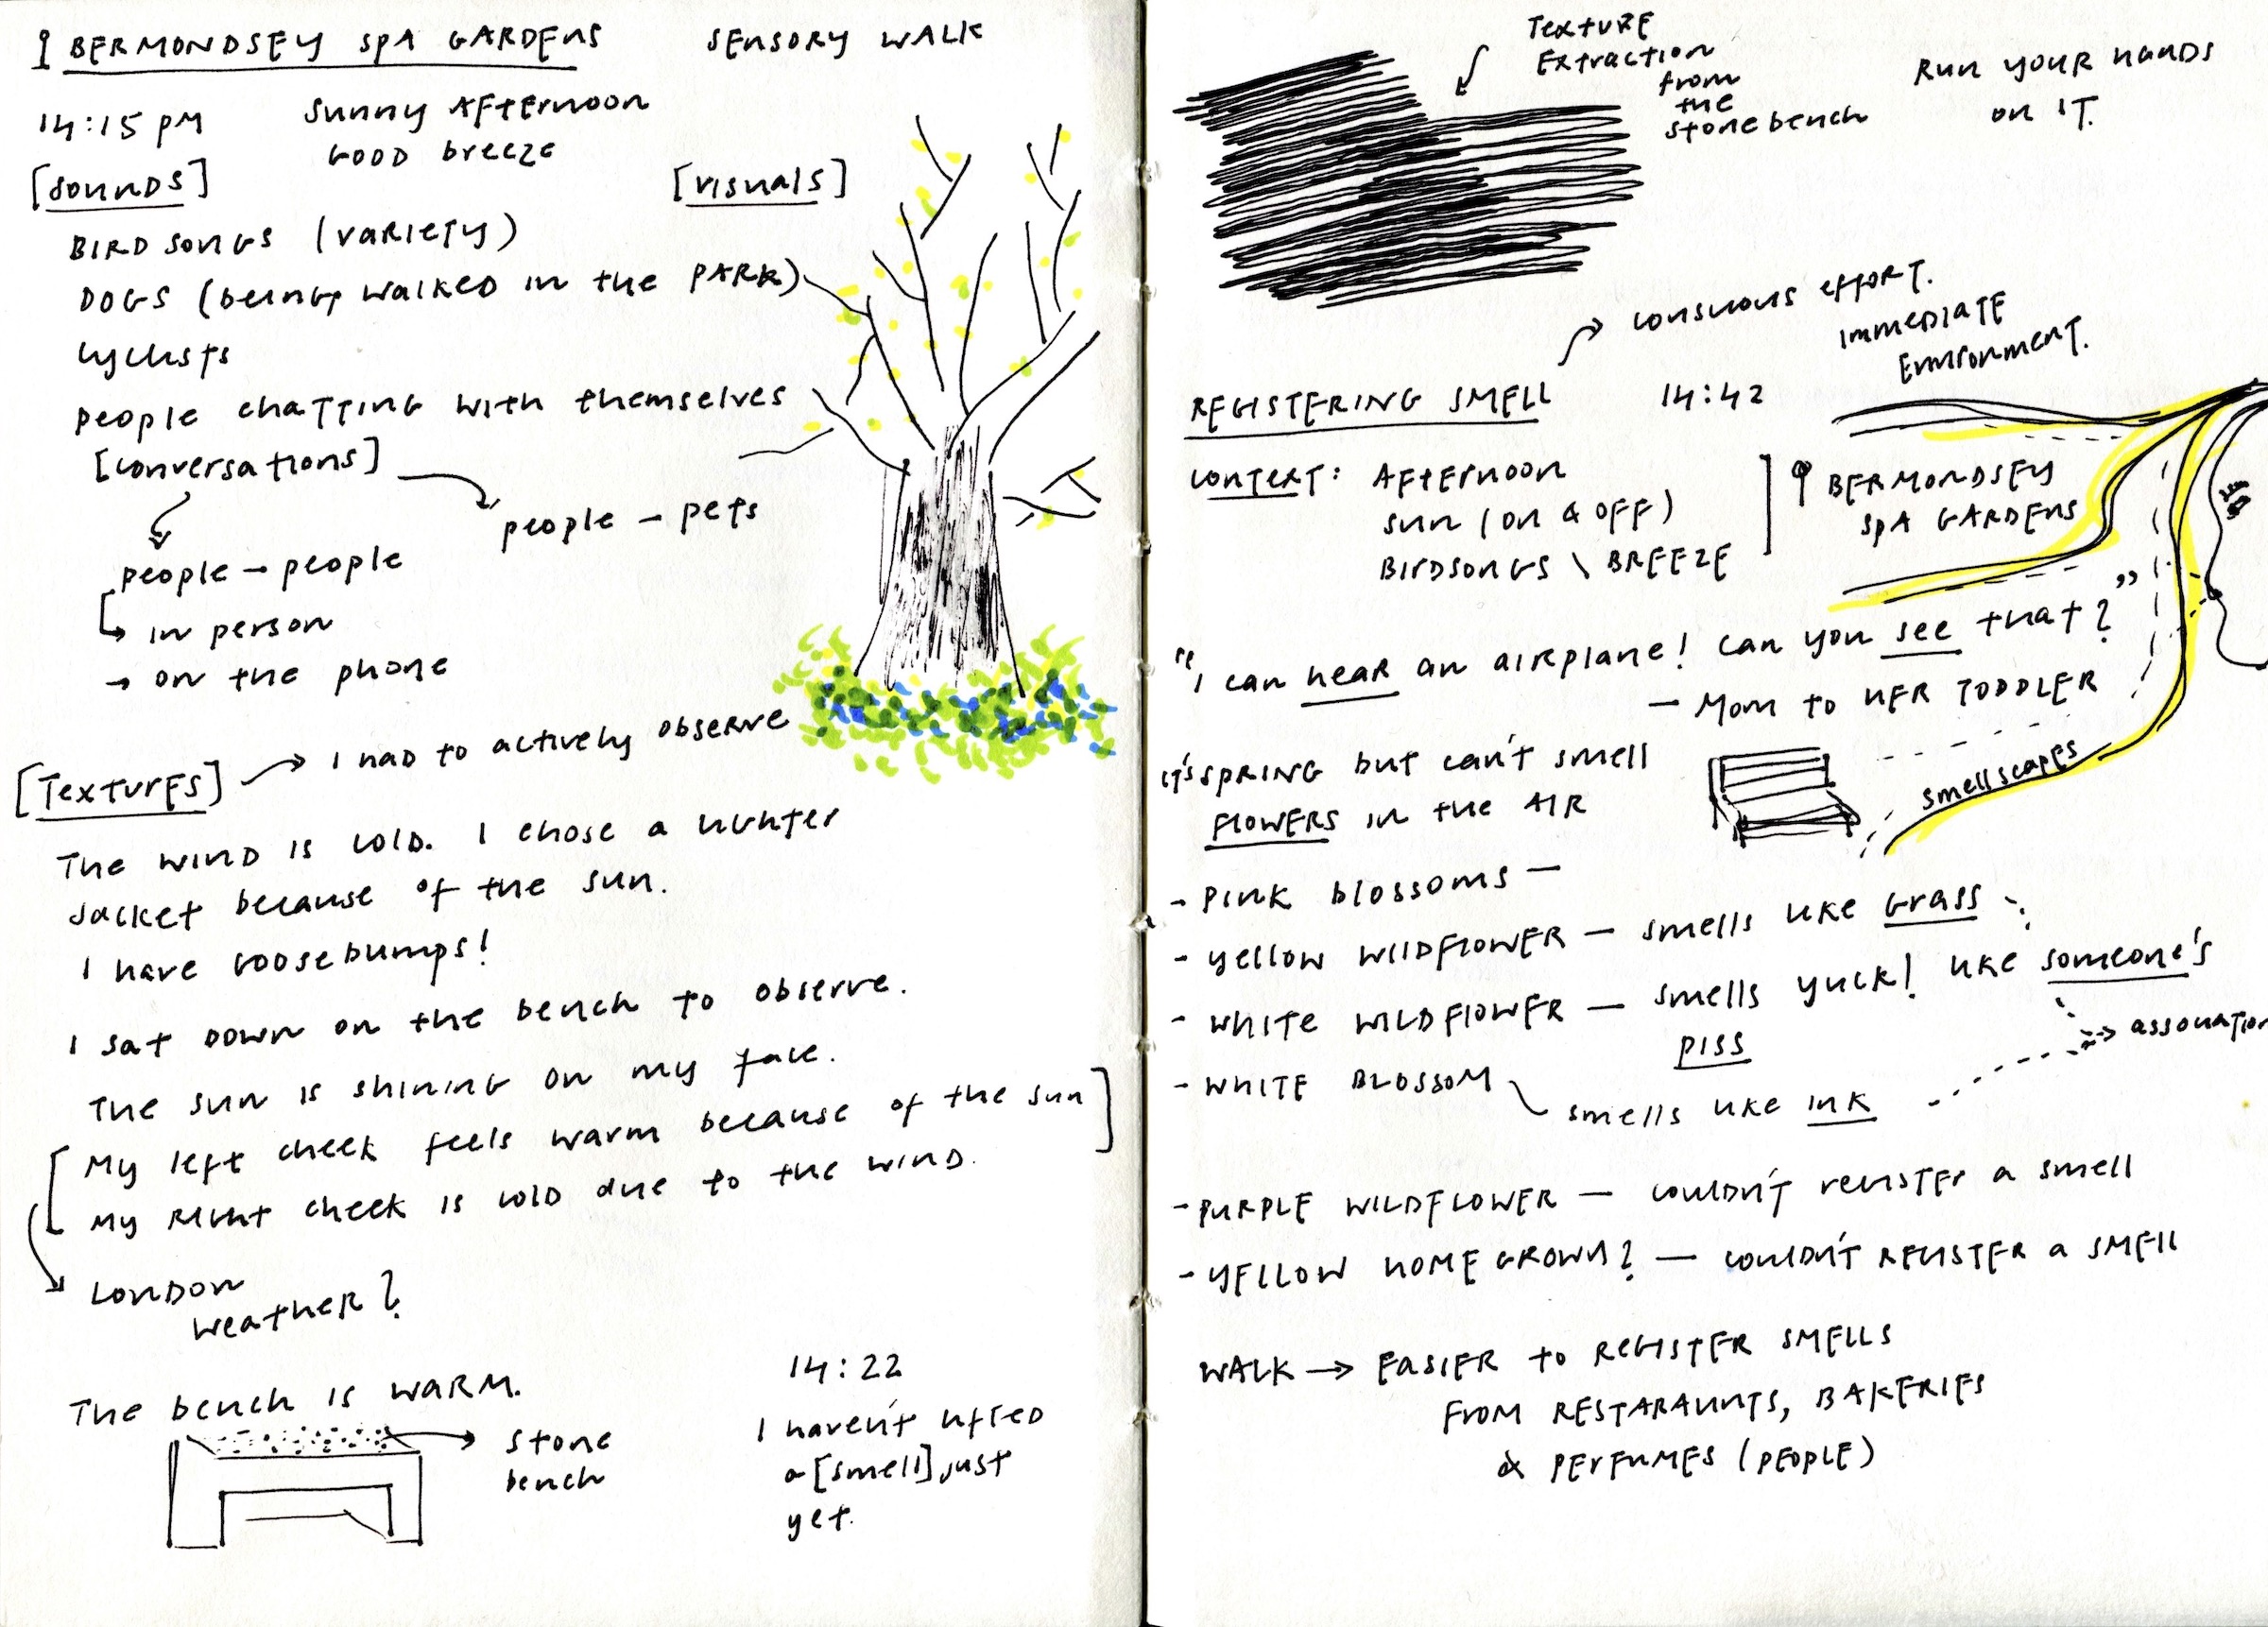 BERMONDSEY SPA GARDENS
SENSORY WALK
14:15 PM
Sunny Afternoon
Good breeze
[sounds]
[visuals]
BIRD SONGS (variety)
DOGS (being walked in the PARK)
cyclists
people chatting with themselves
[conversations]
people – pets
people – people
↳ in person
→ on the phone
[Textures] → I had to actively observe
The wind is cold. I chose a lighter
Jacket because of the sun.
I have goosebumps!
I sat down on the bench to observe.
The sun is shining on my face.
[My left cheek feels warm because of the sun]
My right cheek is cold due to the wind.
London
weather?
The bench is warm.
→ stone
bench
14:22
I haven't lifted
a [smell] just
yet.
Texture
Extraction
from
the
stone bench
Run your hands
on IT.
→ conscious effort.
immediate
Environment.
REGISTERING SMELL 14:42
context: Afternoon
sun (on & off)
Birdsongs \ BREEZE
BERMONDSEY
SPA GARDENS
"I can hear an airplane! can you see that?"
– Mom to her TODDLER
It's SPRING but can't smell
FLOWERS in the AIR
smellscapes
- PINK blossoms –
- yellow wildflower – smells like grass
- white wildflower – smells yuck! like someone's
piss
- white blossom
smells like ink
association
- PURPLE WILDFLOWER – couldn't register a smell
- YELLOW HOMEGROWN? – couldn't REGISTER a smell
WALK → EASIER to REGISTER SMELLS
FROM RESTARAUNTS, BAKERIES
& PERFUMES (PEOPLE)